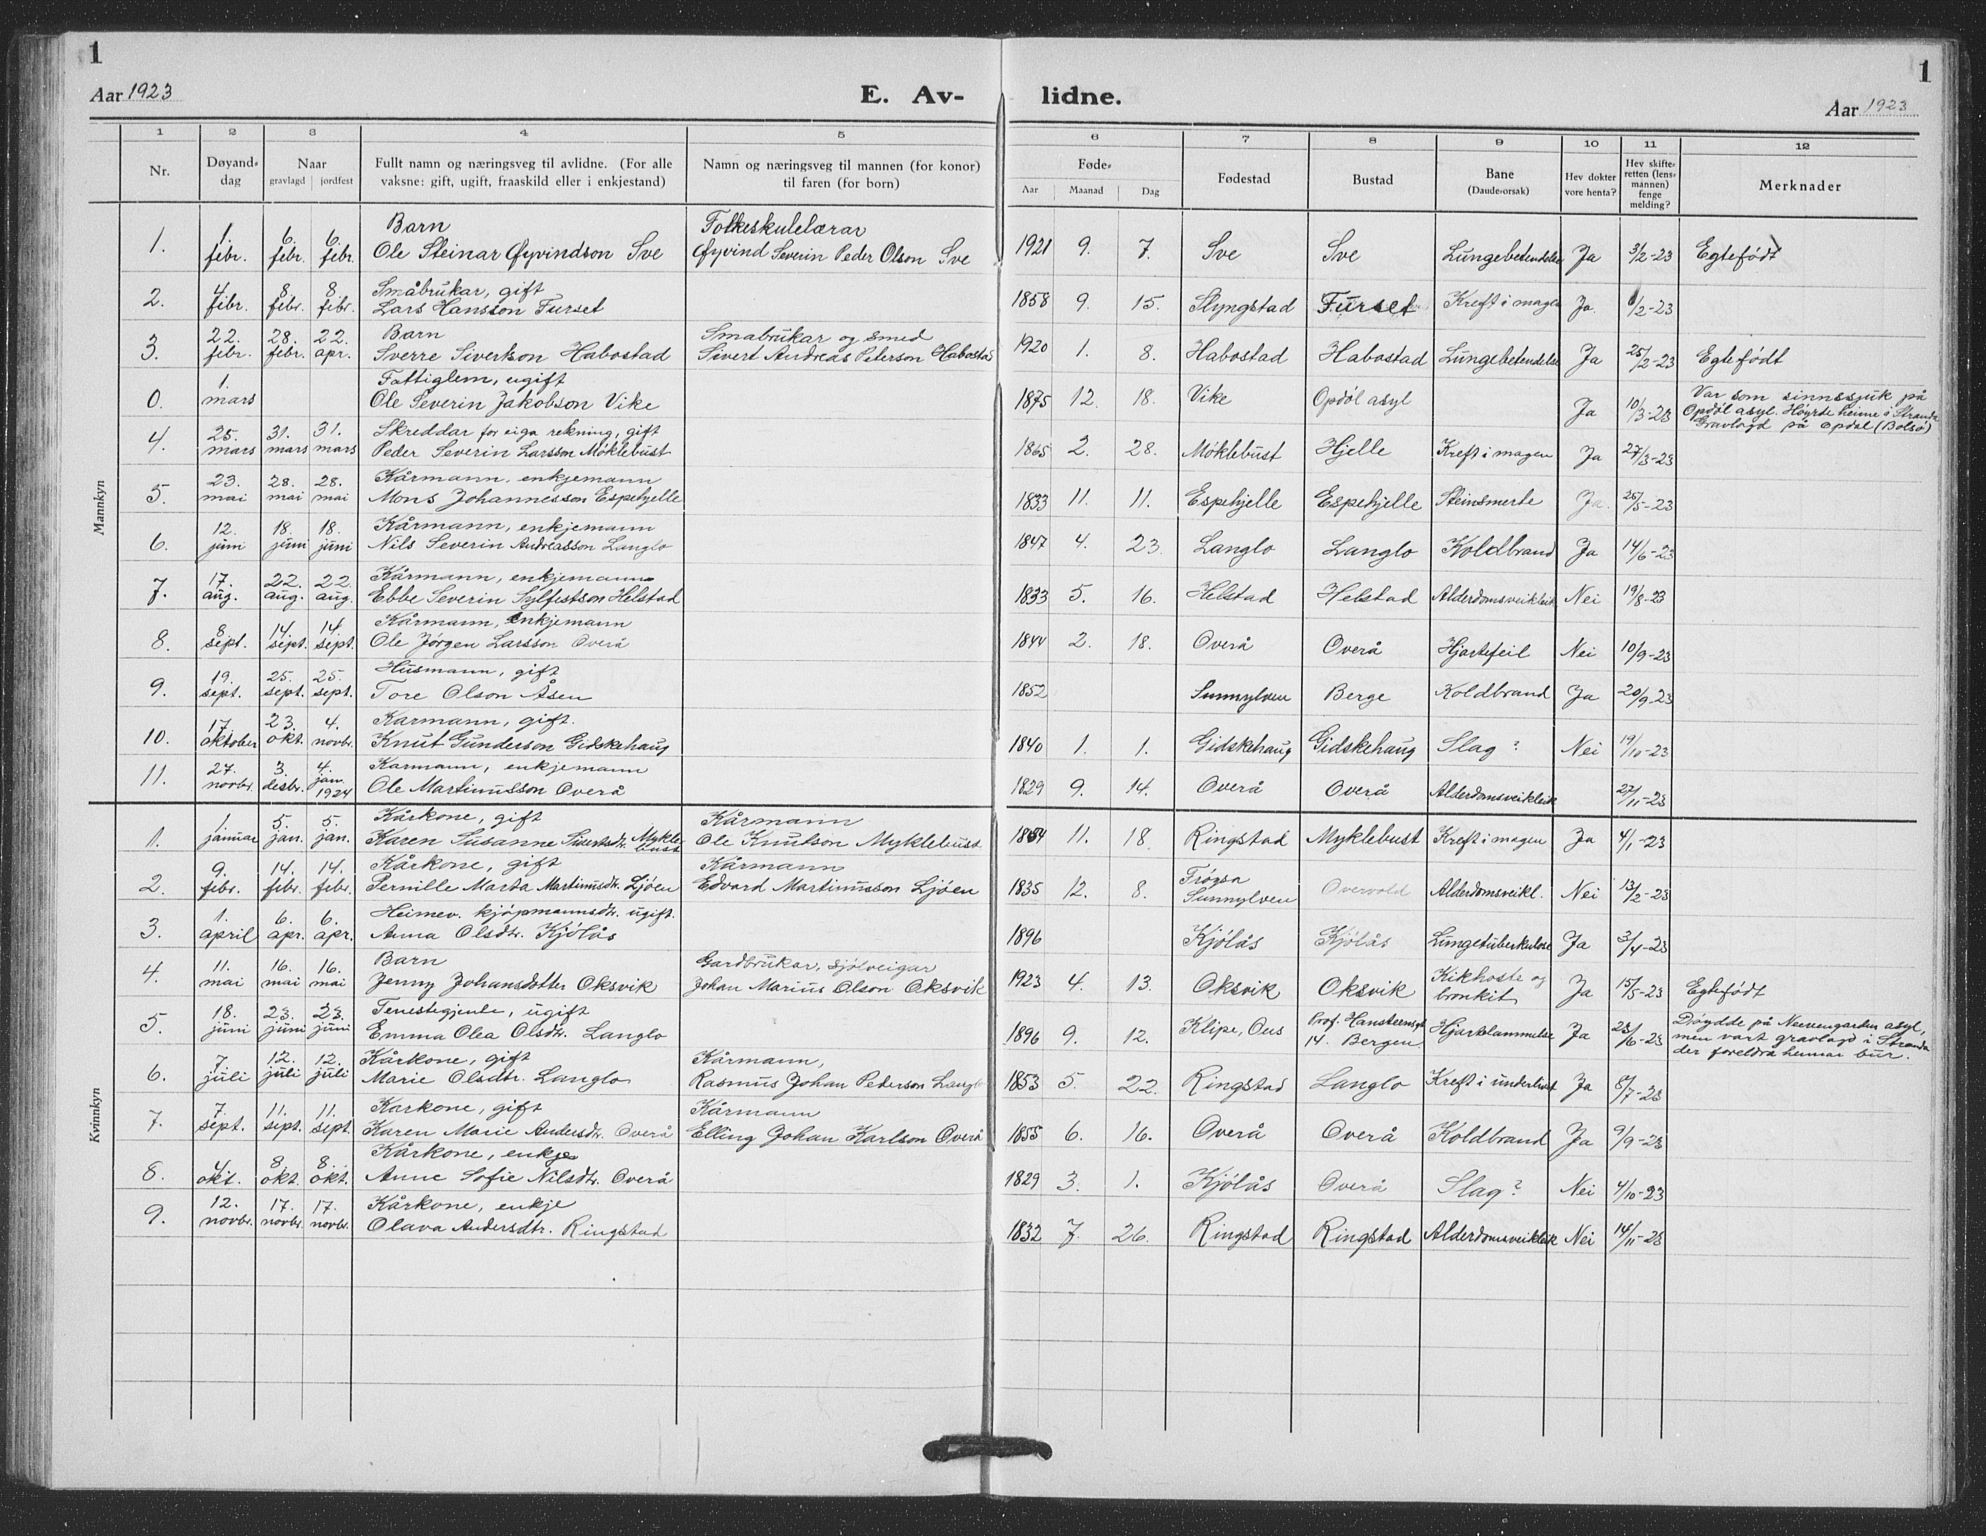 1
Aar 1923
E. Av-
lidne.
Aar 1923
1
1 2 3 4 5 6 7 8 9 10 11 12
Nr.
Døyand-
dag
Naar
gravlagd jordfest
Fullt namn og næringsveg til avlidne. (For alle
vaksne: gift, ugift, fraaskild eller i enkjestand)
Namn og næringsveg til mannen (for konor)
til faren (for born)
Føde-
Aar Maanad Dag
Fødestad
Bustad
Bane
(Daude-orsak)
Hev dokter
vore henta?
Hev skifte-
retten (lens-
mannen)
fenge
melding?
Merknader
Mannkyn
Barn Folkeskulelærar
1. 1. febr. 6. febr. 6. febr. Ole Steinar Øyvindson Sve Øyvind Severin Peder Olson Sve 1921 9. 7. Sve Sve Lungebetendelse Ja 3/2-23 Egtefødt
Småbrukar, gift
2. 4. febr. 8. febr. 8. febr. Lars Hansson Furset 1858 9. 15. Slyngstad Furset Kreft i magen Ja /2-23
Barn Smabrukar og smed
3. 22. febr. 28. febr. 22. apr. Sverre Sivertson Habostad Sivert Andreas Peterson Habostad 1920 1. 8. Habostad Habostad Lungebetendelse Ja 25/2-23 Egtefødt
Fattiglem, ugift
0. 1. mars Ole Severin Jakobson Vike 1875 12. 18. Vike Opdøl asyl Ja 10/3-23 Var som sinnssjuk på
Opdøl asyl. Høyrde heime i Stranda
Gravlagd på Opdøl (Bolsø)
Skreddar for eiga rekning, gift
4. 25. mars 31. mars 31. mars Peder Severin Larsson Møklebust 1865 2. 28. Møklebust Hjelle Kreft i magen Ja 27/3-23
Kårmann, enkjemann
5. 23. mai 28. mai 28. mai Mons Johannesson Espehjelle 1833 11. 11. Espehjelle Espehjelle Steinsmerte Ja. /5-23
Kårmann, enkjemann
6. 12. juni 18. juni 18. juni Nils Severin Andreasson Langlo 1847 4. 23. Langlo Langlo Koldbrand Ja 14/6-23
Kårmann, enkjemann
7. 17. aug. 22. aug. 22. aug. Ebbe Severin Sylfestson Helstad 1833 5. 16. Helstad Helstad Alderdomsveikleik Nei 19/8-23
Kårmann, enkjemann
8. 8. sept. 14 sept. 14 sept. Ole Jørgen Larsson Overå 1844 2. 18. Overå Overå Hjartefeil Nei 10/9-23
Husmann, gift
9. 19. sept. 25. sept. 25. sept. Tore Olson Åsen 1852 Sunnylven Berge Koldbrand Ja 20/9-23
Karmann, gift.
10. 17. oktober 23. okt. 4. novbr. Knut Gunderson Gidskehaug 1840 1. 1. Gidskehaug Gidskehaug Slag? Nei 19/10-23
Karmann, enkjemann
11. 27. novbr. 3. desbr. 4. jan. 1924 Ole Martinusson Overå 1829 9. 14. Overå Overå Alderdomsveikleik 27/11-23
Kvinnkyn
Kårkone, gift Kårmann
1. 1. januar 5. jan. 5. jan. Karen Susanne Sivertsdtr. Myklebust Ole Knutson Myklebust 1854 11. 18 Ringstad Myklebust Kreft i magen Ja 4/1-23
Kårkone, gift Kårmann
2. 9. febr. 14. febr. 14. febr. Pernille Marta Martinusdtr. Ljøen Edvard Martinusson Ljøen 1835 12. 8. Trøgsa Sunnylven Overvold Alderdomsveikl. Nei 13/2-23
Heimev. kjøpmannsdtr. ugift.
3. 1. april 6. apr. 6. apr. Anna Olsdtr. Kjølås 1896 Kjølås Kjølås Lungetuberkulose Ja 3/4-23
Barn Gardbrukar, sjølveigar
4. 11. mai 16. mai 16. mai Jenny Johansdotter Oksvik Johan Marius Olson Oksvik 1923 4. 13. Oksvik Oksvik Kikhoste og bronkit Ja 15/5-23 Egtefødt
Tenestegjente, ugift
5. 18. juni 23. juni 23. juni Emma Olea Olsdtr. Langlo 1896 9. 12. Klipe, Ous Prof. Hansteensgt 14. Bergen Hjartelammelse Ja 23/6-23 Døydde på Neevengarden asyl,
men vart gravlagd i Stranda
der foreldra hennar bur.
Kårkone, gift Kårmann,
6. 7. juli 12. juli 12. juli Marie Olsdtr. Langlo Rasmus Johan Pederson Langlo 1853 5. 22. Ringstad Langlo Kreft i underlivet Ja 8/7-23
Karkone, gift Kårmann
7. 7. sept. 11. sept. 11. sept. Karen Marie Andersdtr. Overå Elling Johan Karlson Overå 1855 6. 16. Overå Overå Koldbrand Ja 9/9-23
Kårkone, enkje
8. 4. okt. 8. okt. 8. okt. Anne Sofie Nilsdtr. Overå 1829 3. 1. Kjølås Overå Slag? Nei 4/10-23
Kårkone, enkje
9. 12. novbr. 17. novbr. 17. novbr. Olava Andersdtr. Ringstad 1832 7. 26. Ringstad Ringstad Alderdomsveikleik Nei 14/11-23